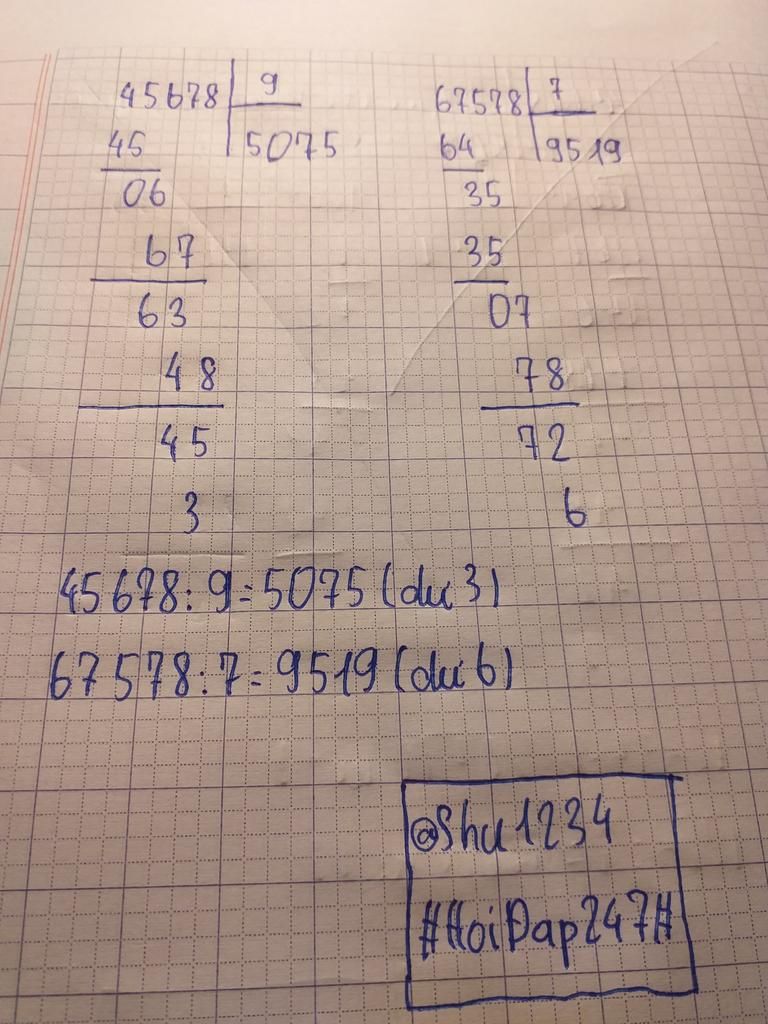 45678 9
45 5075
06
67
63
48
45
3
67578 7
64 9519
35
35
07
78
72
6
45678:9=5075(dư 3)
67578:7=9519(dư 6)
@Shu1234
#HoiDap247#